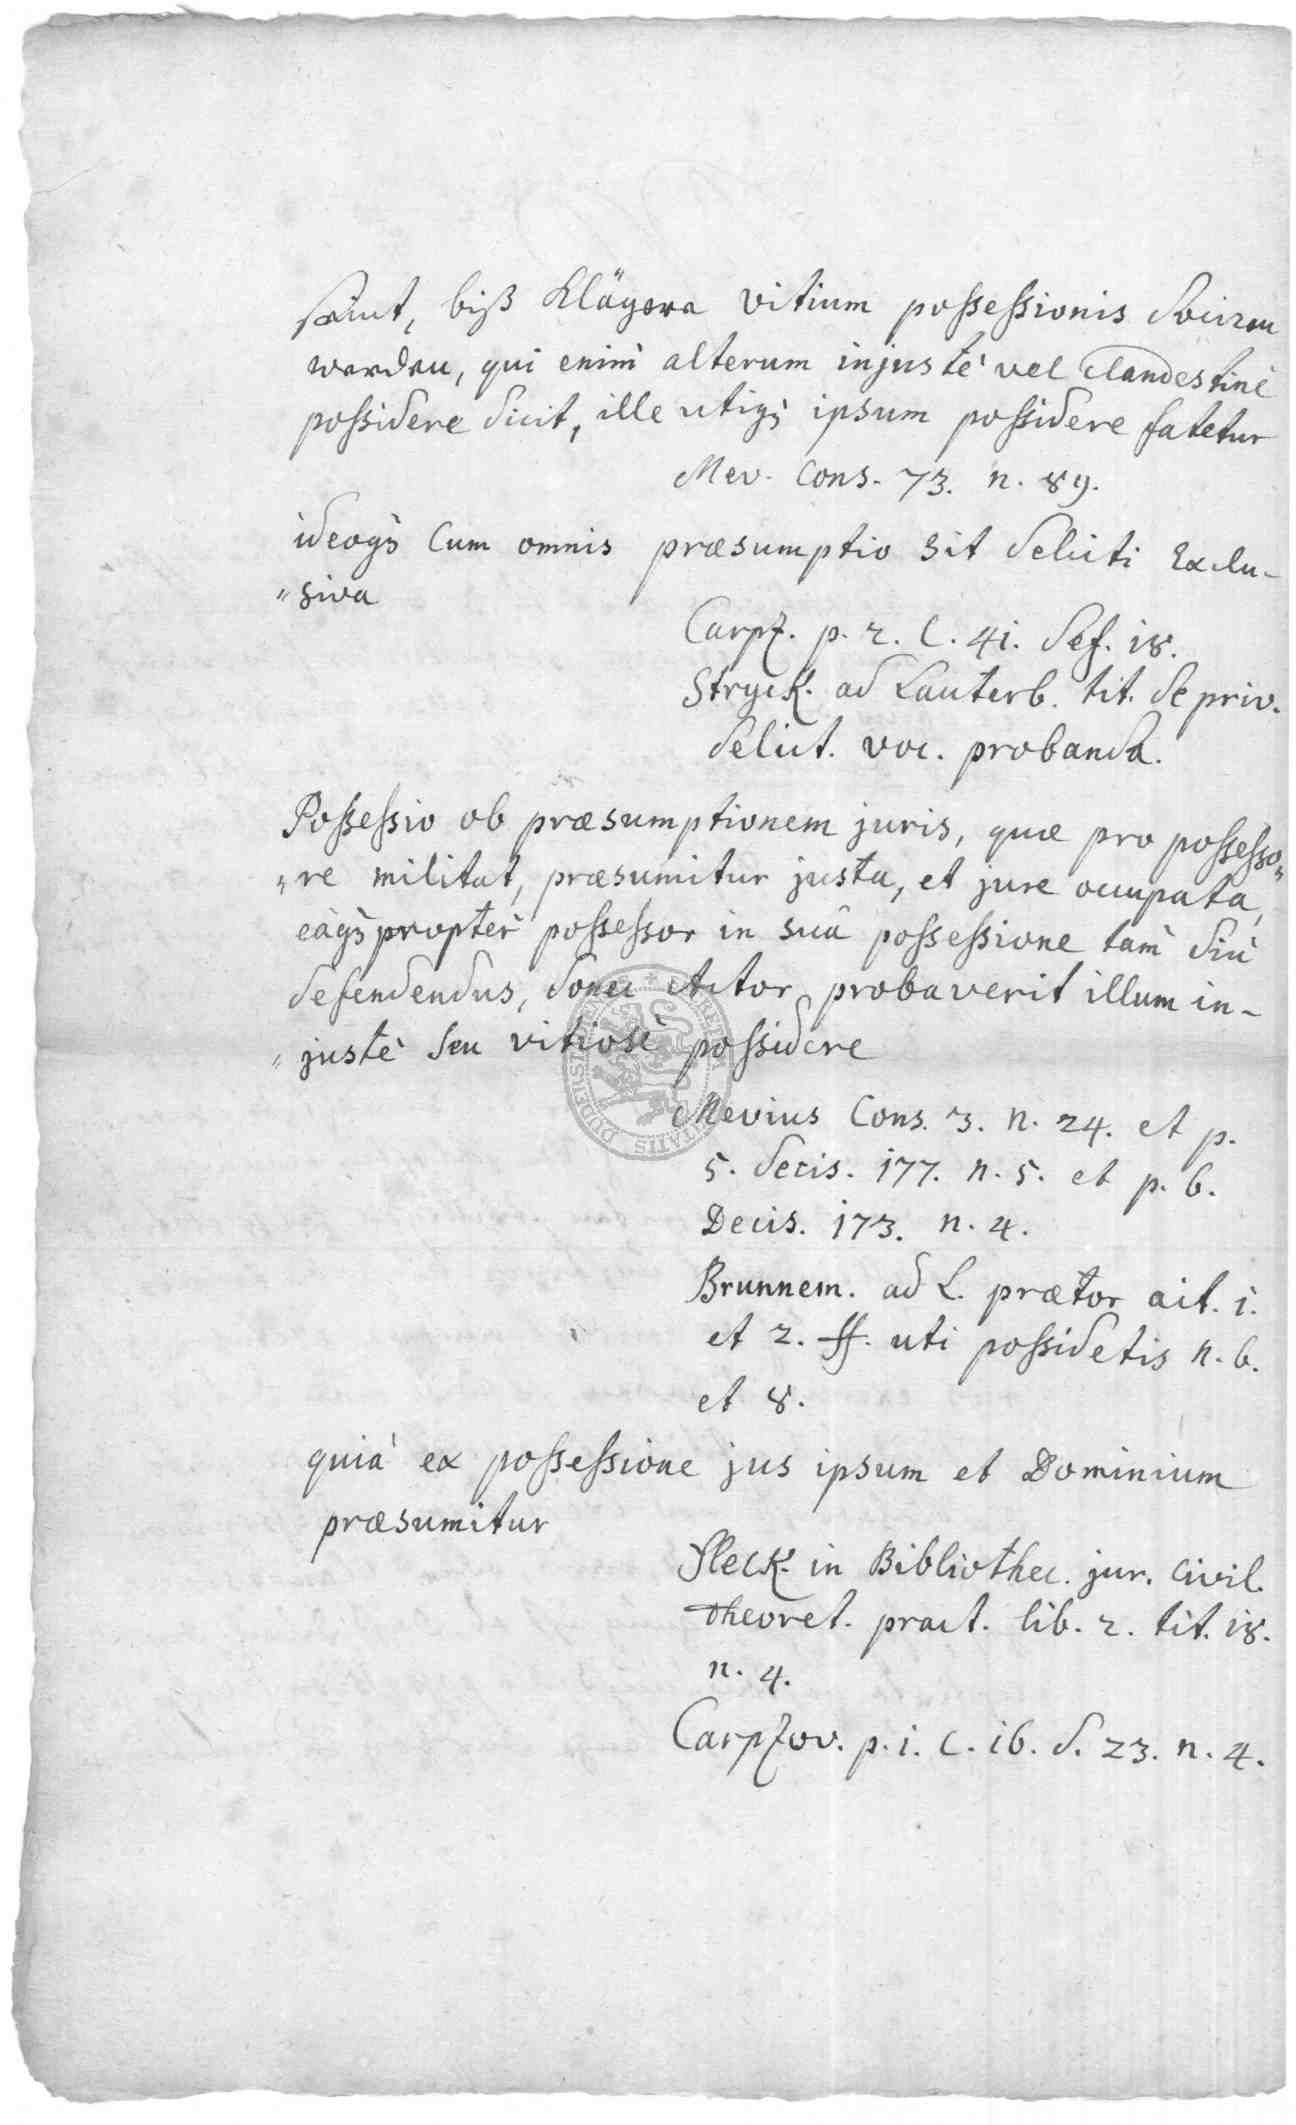 seint, biß Klägere vitium possessionis dociren
werden, qui enim alterum injustè vel clandestinè
possidere dicit, ille utiq; ipsum possidere fatetur
Mev. Cons. 73. n. 89.
ideoq; Cum omnis præsumptio sit delicti Exclu-
"siva
Carpz. p. 2. C. 41. def. 18.
Stryck. ad Lauterb. tit. de priv.
delict. voc. probanda.
Possessio ob præsumptionem juris, quæ pro possesso"
"re militat, præsumitur justa, et jure occupata,
eàq; proptèr possessor in suâ possessione tàm diù
defendendus, donec Actor probaverit illum in-
"justè seu vitiosè possidere
Mevius Cons. 3. n. 24. et p.
5. decis. 177. n. 5. et p. 6.
Decis. 173. n. 4.
Brunnem. ad L. prætor ait. 1.
et 2. ff. uti possidetis n. 6.
et 8.
quià ex possessione jus ipsum et Dominium
præsumitur
Fleck. in Bibliothec. jur. Civil.
theoret. pract. lib. 2. tit. 18.
n. 4.
Carpzov. p. 1. C. 16. d. 23. n. 4.